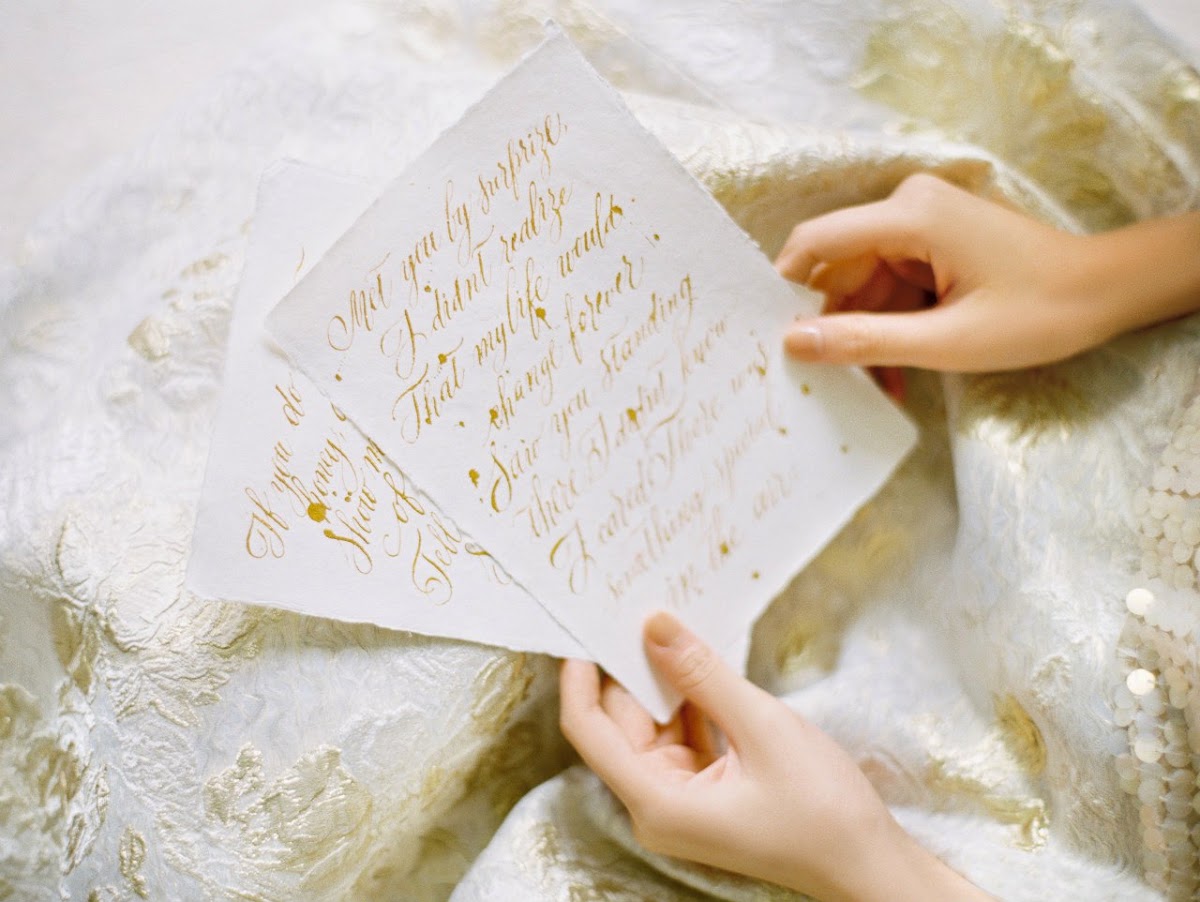 Met you by surprize,
I didnt realize
That my life would
change forever
Saw you standing
there I didnt know
I cared There was
something special
in the
If you do
honey,
show m
of
Tell